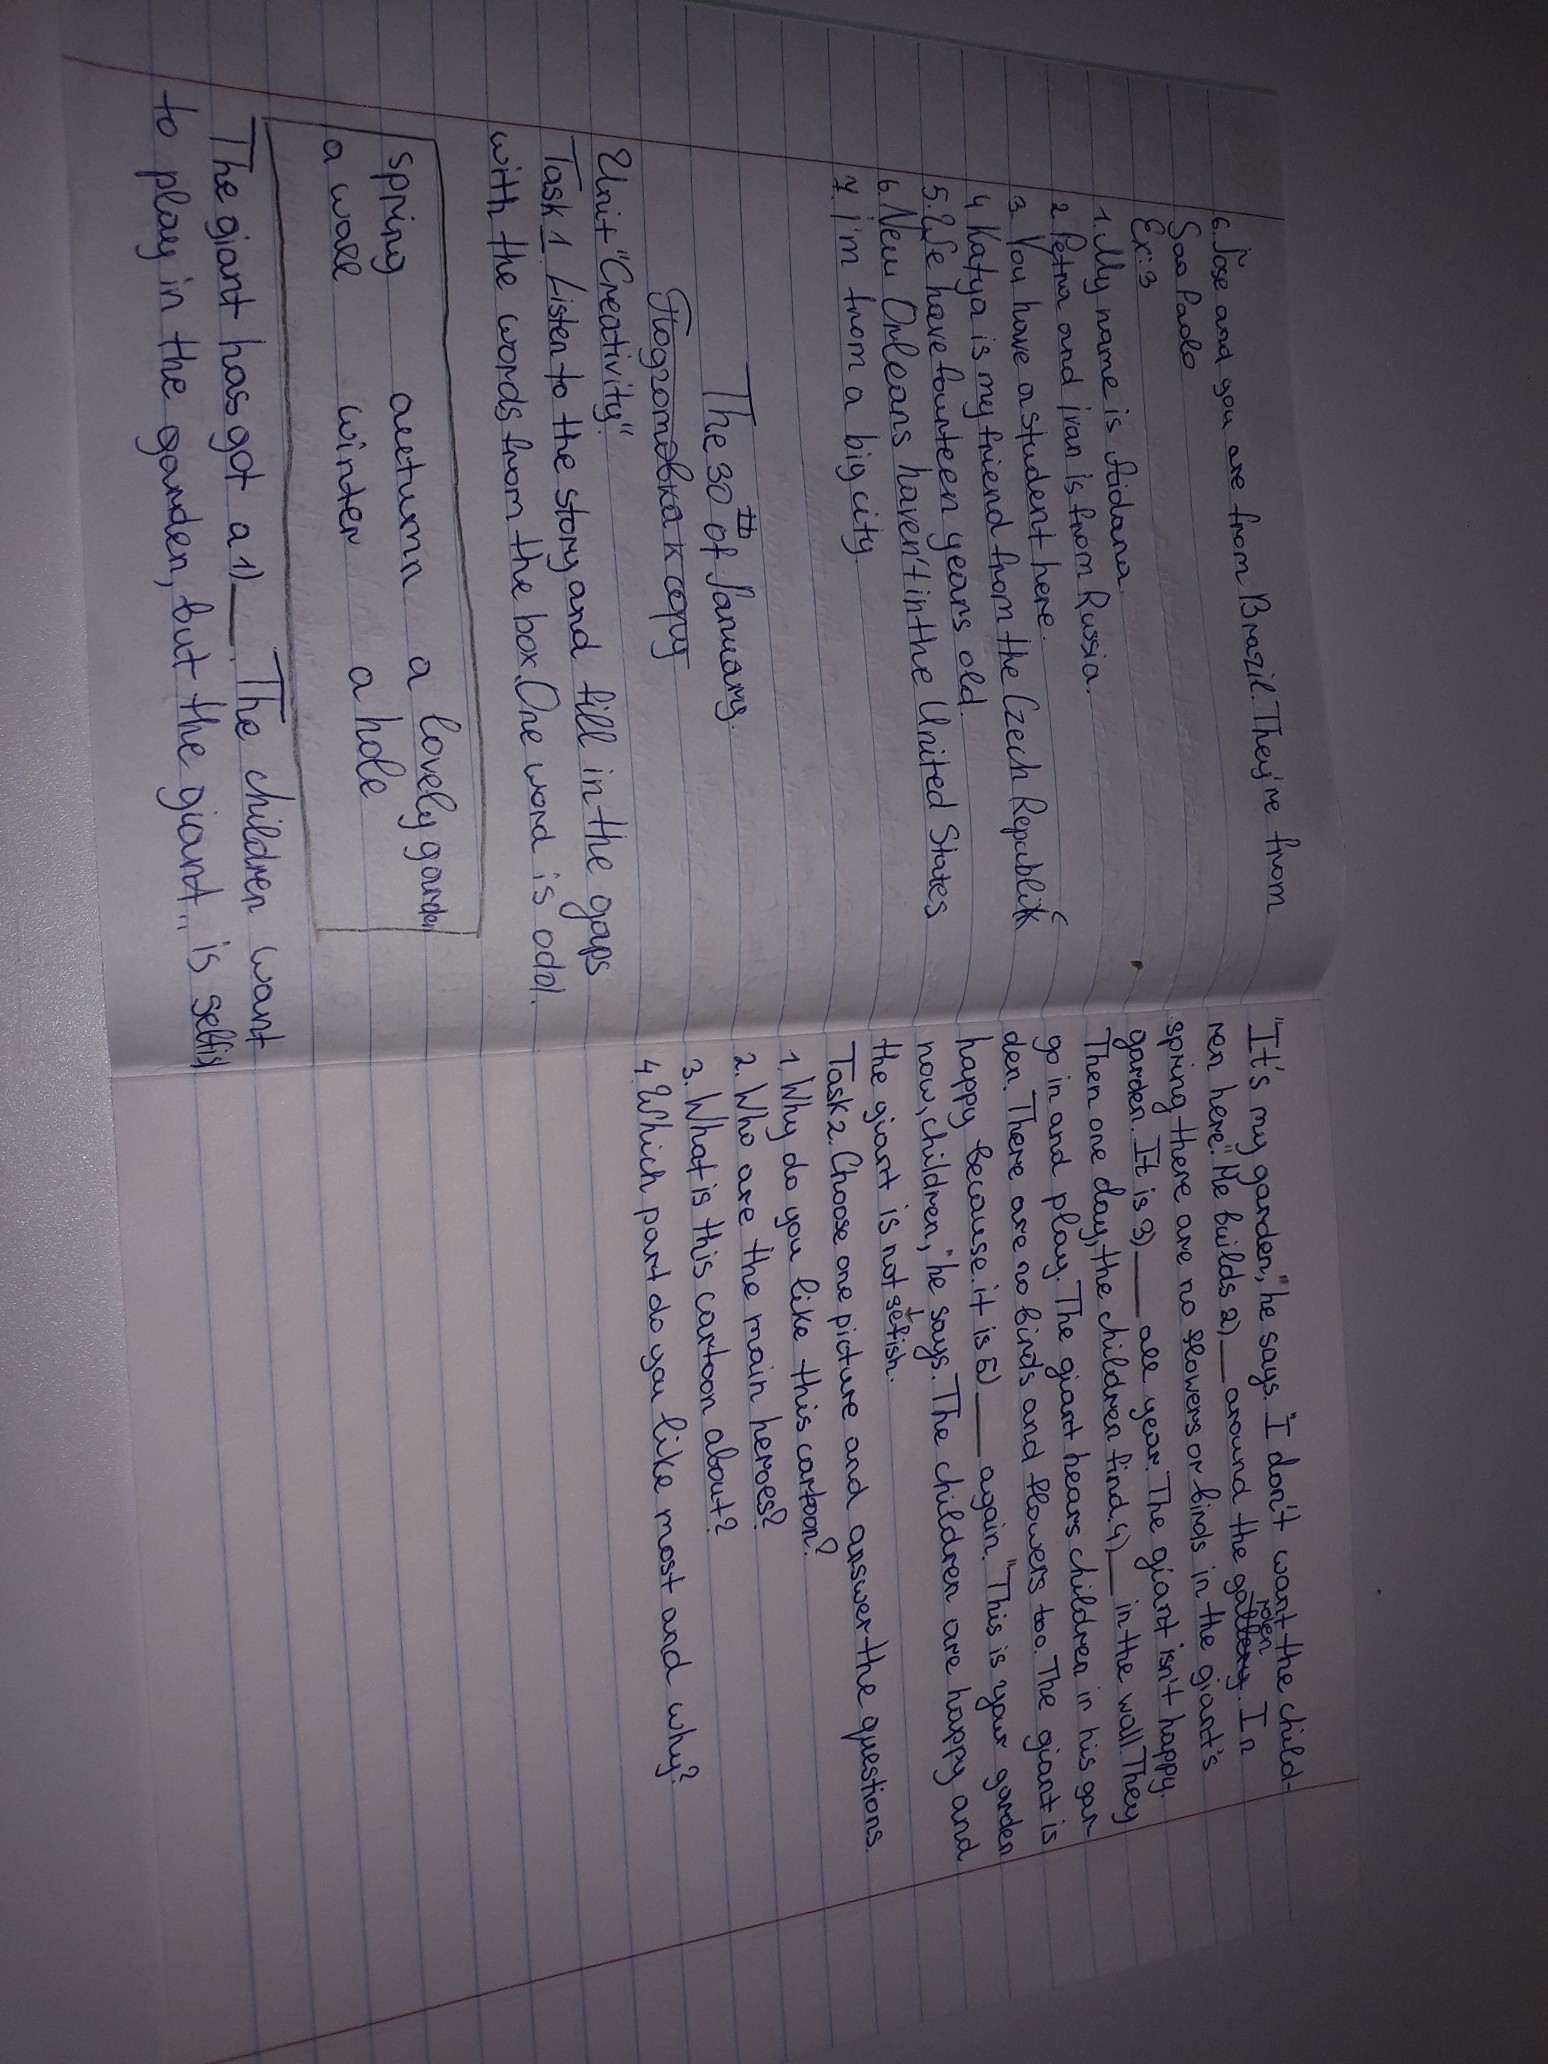 6. Jose and you are from Brazil. They're from
Sao Paolo
Ex: 3
1. My name is Aidana.
2. Petra and Ivan is from Russia.
3. You have a student here.
4. Katya is my friend from the Czech Republik
c
5. We have fourteen years old.
6. New Orleans haven't in the United States
7. I'm from a big city.
The 30th of January.
Подготовка к сору
Unit "Creativity"
Task 1 Listen to the story and fill in the gaps
with the words from the box. One word is odd.
spring autumn a lovely garden
a wall winter a hole
The giant has got a 1)___. The children want
to play in the garden, but the giant is selfish
"It's my garden," he says. "I don't want the child-
ren here." He builds 2)___ around the garden. In
spring there are no flowers or birds in the giant's
garden. It is 3)___ all year. The giant isn't happy.
Then one day, the children find 4)___ in the wall. They
go in and play. The giant hears children in his gar-
den. There are no birds and flowers too. The giant is
happy because it is 5)___ again. "This is your garden
now, children," he says. The children are happy and
the giant is not selfish.
Task 2. Choose one picture and answer the questions
1. Why do you like this cartoon?
2. Who are the main heroes?
3. What is this cartoon about?
4. Which part do you like most and why?